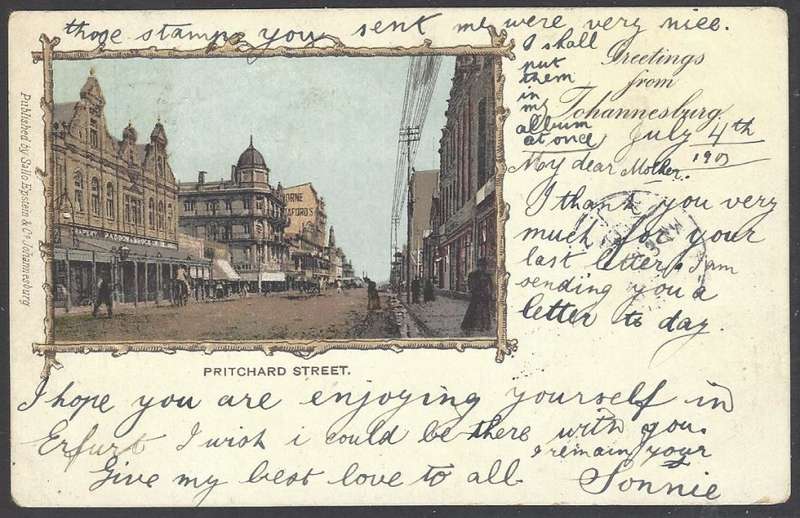 those stamps you sent me were very nice.
I shall
put
them
in
my
album
at once
Greetings
from
Johannesburg.
July 4th
190
My dear Mother.
I thank you very
much for your
last letter. I am
sending you a
letter to day.
Published by Sallo Epstein & Co Johannesburg
PRITCHARD STREET.
I hope you are enjoying yourself in
Erfurt I wish i could be there with you.
Give my best love to all I remain your
Sonnie